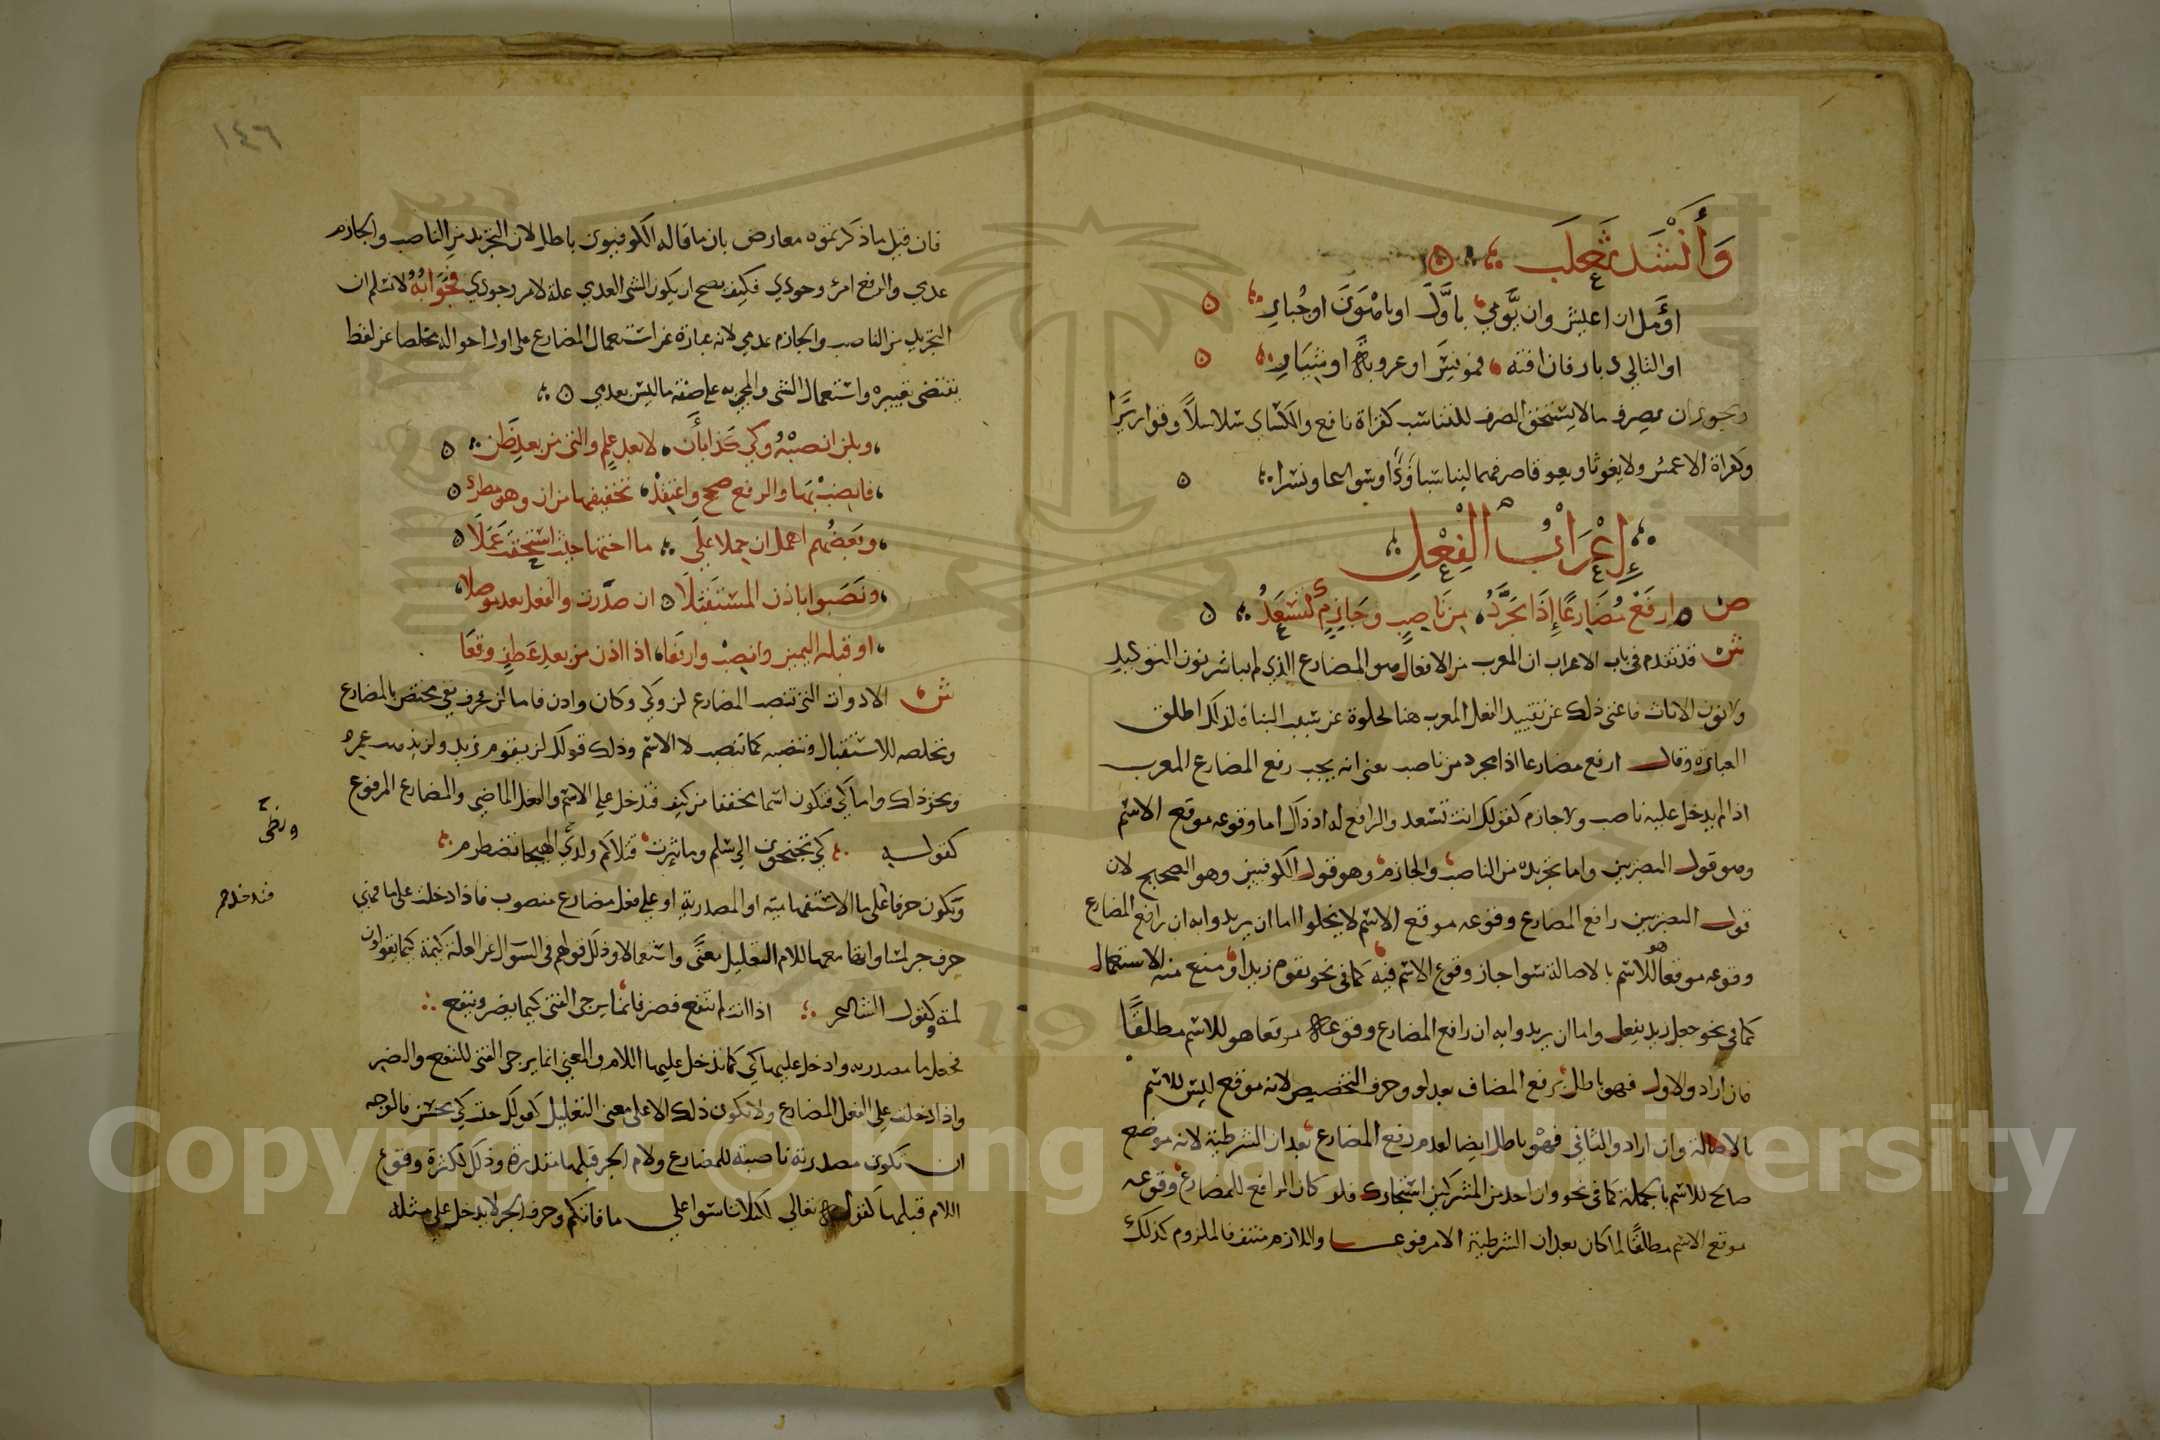 وَأَنْشَدَ ثَعْلَب
اؤمل ان اعيش وان يومي باول او باهون او جبار
او التالي دبار فان افته فمونس او عروبة او شيار
ويجوز ان يصرف ما لا يستحق الصرف للتناسب كقراة نافع والكساي سلاسلا وقواريرا
وكقراة الاعمش ولا يغوثا ويعوقا صرفهما ليناسبا ودا وسواعا ونسرا
إِعْرَابُ الْفِعْلِ
ص ارفع مضارعا اذا يجرد من ناصب وجازم كتسعد
ش قد تقدم في باب الاعراب ان المعرب من الافعال هو المضارع الذي لم يباشر نون التوكيد
ولا نون الاناث فاغنى ذلك عن تقييد الفعل المعرب هنا لخلوه عن شبب البناء فلذلك اطلق
العبارة وقال ارفع مضارعا اذا يجرد من ناصب يعني انه يجب رفع المضارع المعرب
اذا لم يدخل عليه ناصب ولا جازم كقولك انت تسعد والرافع له اذ ذاك اما وقوعه موقع الاسم
وهو قول البصريين واما تجريده من الناصب والجازم وهو قول الكوفيين وهو الصحيح لان
قول البصريين رافع المضارع وقوعه موقع الاسم لا يخلوا اما ان يريدوا به ان رافع المضارع
وقوعه موقعا هو للاسم بالاصالة سوا جاز وقوع الاسم فيه كما في نحو يقوم زيد او منع منه الاستعمال
كما في نحو جعل زيد يفعل واما ان يريدوا به ان رافع المضارع وقوعه موقعا هو للاسم مطلقا
فان ارادوا الاول فهو باطل برفع المضارع بعد لو وحرف التخصيص لانه موقع ليس للاسم
بالاصالة وان ارادوا الثاني فهو باطل ايضا لعدم رفع المضارع بعد ان الشرطية لانه موضع
صالح للاسم بالجملة كما في نحو وان احد من المشركين استجارك فلو كان الرافع للمضارع وقوعه
موقع الاسم مطلقا لما كان بعد ان الشرطية الا مرفوعا واللازم منتف فالملزوم كذلك
١٤٦
فان قيل ما ذكرتموه معارض بان ما قاله الكوفيون باطل لان التجريد من الناصب والجازم
عدمي والرفع امر وجودي فكيف يصح ان يكون الشي العدمي علة لامر وجودي فجوابه لا نسلم ان
التجريد من الناصب والجازم عدمي لانه عبارة عن استعمال المضارع على اول احواله مخلصا عن لفظ
يقتضي تغييره واستعمال الشي والمجي به على صفة ما ليس بعدمي
وبلن انصبه وكي كذا بان لا بعد علم والتي من بعد ظن
فانصب بها والرفع صحح واعتقد تخفيفها من ان وهو مطرد
وبعضهم اهمل ان حملا على ما اختها حيث استحقت عملا
ونصبوا باذن المستقبلا ان صدرت والفعل بعد موصلا
او قبله اليمين وانصب وارفعا اذا اذن من بعد عطف وقعا
ش الادوات التي تنصب المضارع لن وكي وكان واذن فاما لن فحرف نفي مختص بالمضارع
وتخلصه للاستقبال وتنصبه كما تنصب لا الاسم وذلك قولك لن يقوم زيد ولن يذهب عمرو
ونحو ذلك واما كي فتكون اسما مخففا من كيف فتدخل على الاسم والفعل الماضي والمضارع المرفوع
كقوله كي تجنحون الى سلم وما ثيرت قتلاكم ولظى الهيجا تضطرم
وتكون حرفا على ما الاستفهامية او المصدرية او على فعل مضارع منصوب فاذا دخلت على ما فهي
حرف جر لمساواتها معها للام التعليل معنى واستعمالا وذلك قولهم في السوال عن العلة كيمه كما يقولون
لمه وكقول الشاعر اذا انت لم تنفع فضر فانما يرجى الفتى كيما يضر وينفع
فجعل ما مصدريه وادخل عليها كي كما تدخل عليها اللام والمعنى انما يرجى الفتى للنفع والضر
واذا دخلت على الفعل المضارع ولا تكون ذلك الا على معنى التعليل كقولك جيت كي تحسن فالوجه
ان تكون مصدرية ناصبة للمضارع ولام الجر قبلها مقدرة وذلك لكثرة وقوع
اللام قبلها كقوله تعالى لكيلا تاسوا على ما فاتكم وحرف الجر لا يدخل على مثله
ولظى
فتدخل
Copyright © King Saud University
1957